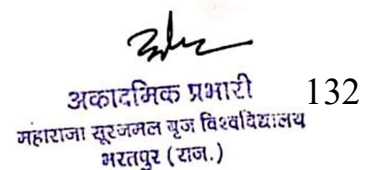 अकादमिक प्रभारी
132
महाराजा सूरजमल बृज विश्वविद्यालय
भरतपुर (राज.)